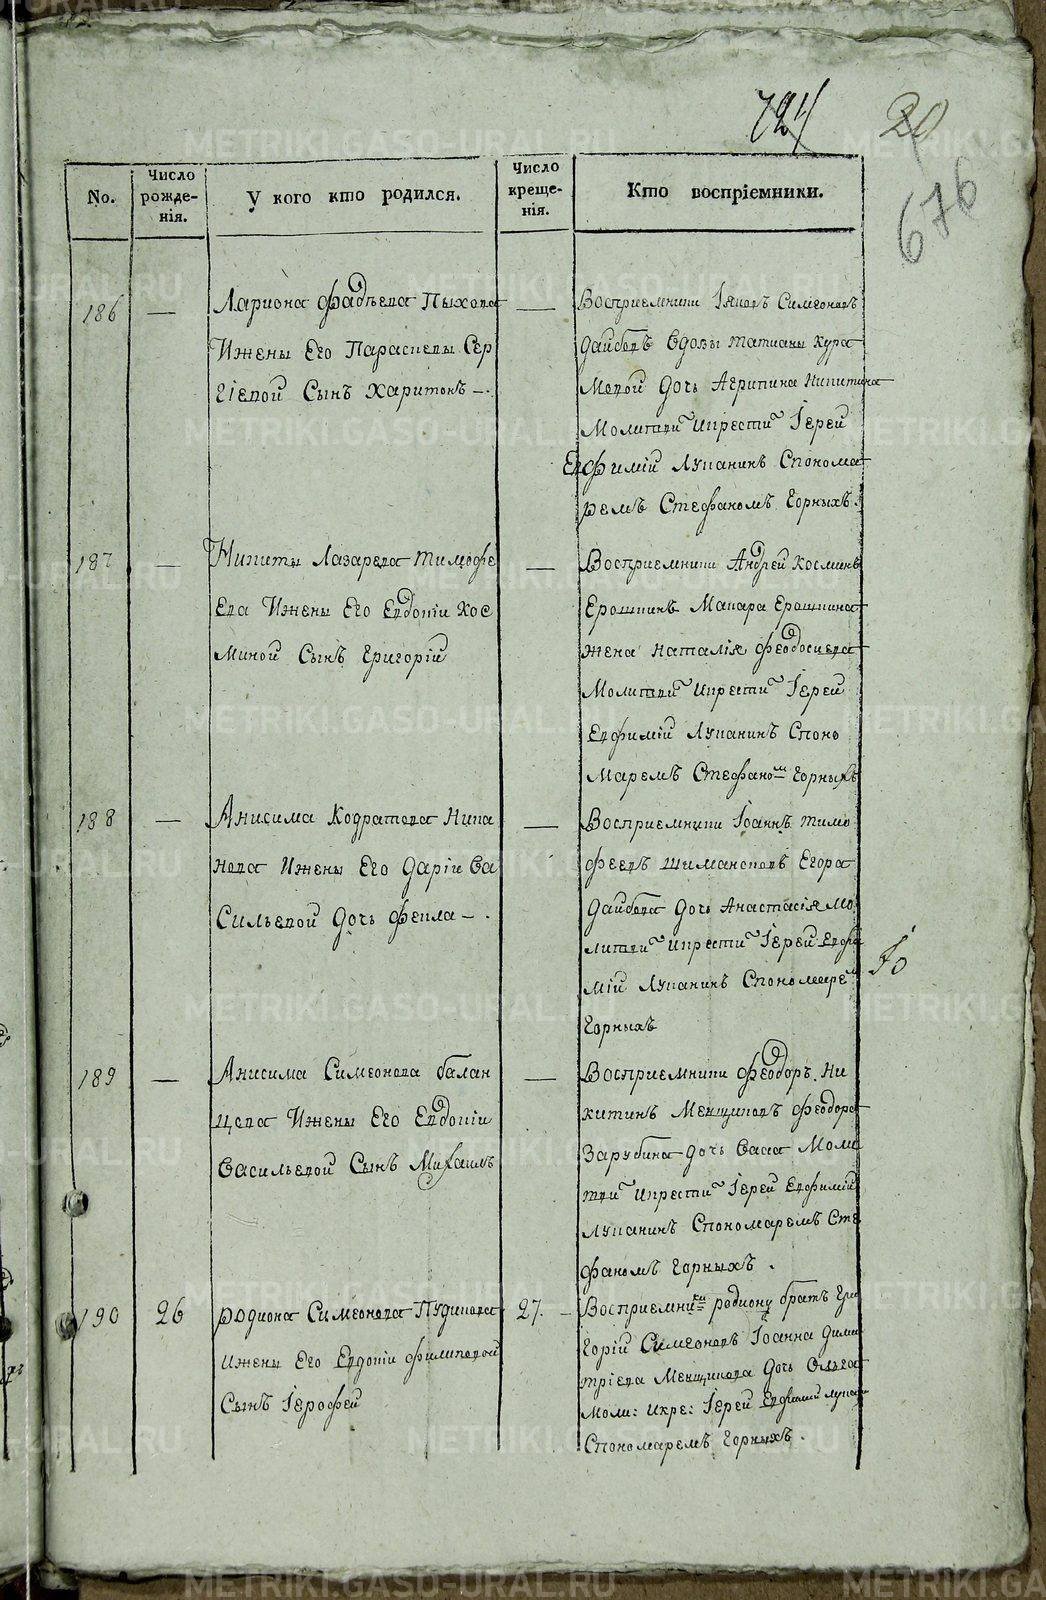 724
20
676
No.
Число рожденія.
У кого кто родился.
Число крещенія.
Кто воспріемники.
186 — Лариона Фадѣева Пыхова
Ижены Его Параскевы Сер
гіевой Сынъ Харитонъ —.
— Восприемники Іяковъ Симеоновъ
дайбовъ Вдовы татианы хура
Мовой дочь Агрипина Никитина
Молитви Икрести Іерей
Евфимій Лупанинъ Спонома
ремъ Стефаномъ Горныхъ.
187 — Никиты Лазарева тимофе
Ева Ижены Его Евдокіи Кос
Миной Сынъ Григорій
— Восприемники Андрей Косминъ
Ерошкинъ Макара Ерошкина
жена наталія феодосиева
Молитви Икрести Іерей
Евфимій Лупанинъ Споно
Маремъ Стефаномъ Горныхъ
188 — Анисима Кодратова Ника
нова Ижены Его дарій Ва
Сильевой дочь фекла —.
— Восприемники Іоаннъ тимо
феевъ шимансковъ Егора
дайбова дочь Анастасія Мо
литви Икрести Іерей Евфи
мій Лупанинъ Спономаремъ
Горныхъ
10
189 — Анисима Симеонова балан
цова Ижены Его Евдокіи
Васильевой Сынъ Михаилъ
— Восприемники феодоръ Ни
китинъ Менщиковъ феодора
Зарубина дочь Васа Моли
тви Икрести Іерей Евфимій
Лупанинъ Спономаремъ Сте
фаномъ Горныхъ.
190 26 родиона Симеонова Пудикова
Ижены Его Евдокіи филиповой
Сынъ Іерофей
27. — Восприемники родиону братъ Гри
горій Симеоновъ Іоанна дими
тріева Менщикова дочь Ольга
Моли: Икре: Іерей Евфимій Лупанин
Спономаремъ Горныхъ.
METRIKI.GASO-URAL.RU